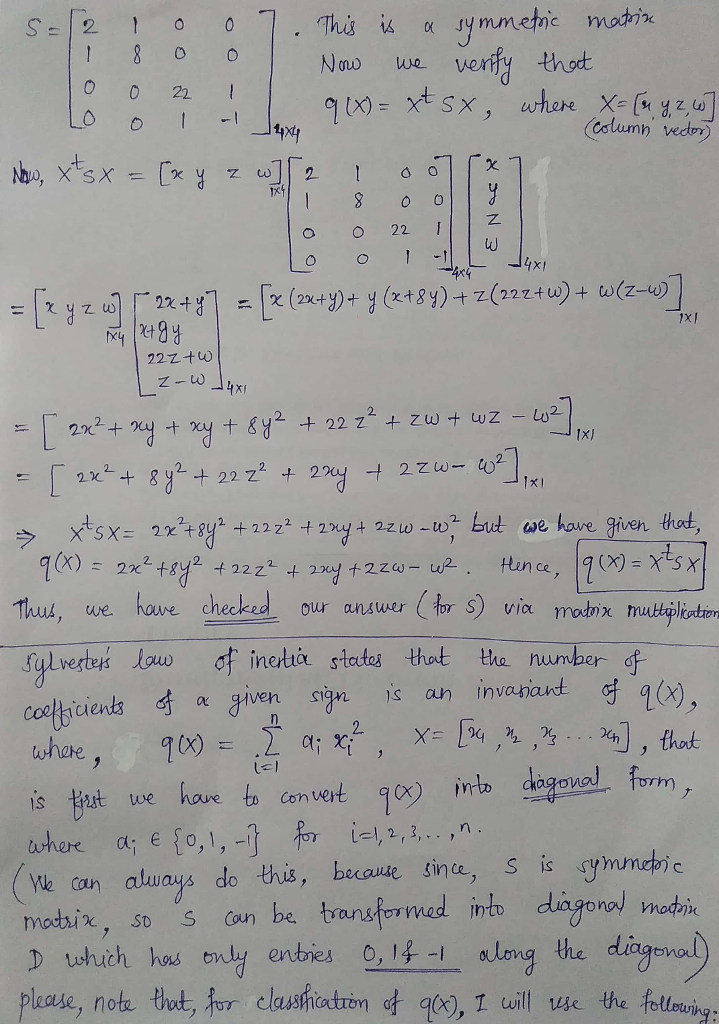 S = [ 2 1 0 0 . This is a symmetric matrix
1 8 0 0 Now we verify that
0 0 22 1 q(X) = X^t SX, where X=[x y, z, w]
0 0 1 -1 ]4x4 (column vector)
Now, X^t SX = [x y z w]1x4 [ 2 1 0 0 ] [ x
1 8 0 0 y
0 0 22 1 z
0 0 1 -1 ]4x4 w ]4x1
= [x y z w]1x4 [ 2x+y = [x(2x+y) + y(x+8y) + z(22z+w) + w(z-w)]1x1
x+9y
22z+w
z-w ]4x1
= [ 2x² + xy + xy + 8y² + 22z² + zw + wz - w²]1x1
= [ 2x² + 8y² + 22z² + 2xy + 2zw - w²]1x1
⇒ X^t SX = 2x²+8y² + 22z² + 2xy + 2zw - w², but we have given that,
q(X) = 2x² + 8y² + 22z² + 2xy + 2zw - w². Hence, q(X) = X^t SX
Thus, we have checked our answer (for S) via matrix multtiplication
Sylvester's law of inertia states that the number of
coefficients of a given sign is an invariant of q(X),
where, q(X) = Σ_{i=1}^{n} a_i x_i², X = [x1, x2, x3 ... xn], that
is first we have to convert q(X) into diagonal form,
where a_i ∈ {0, 1, -1} for i=1,2,3,..,n.
(We can always do this, because since, S is symmetric
matrix, so S can be transformed into diagonal matrix
D which has only entries 0, 1 & -1 along the diagonal)
please, note that, for classification of q(X), I will use the following: